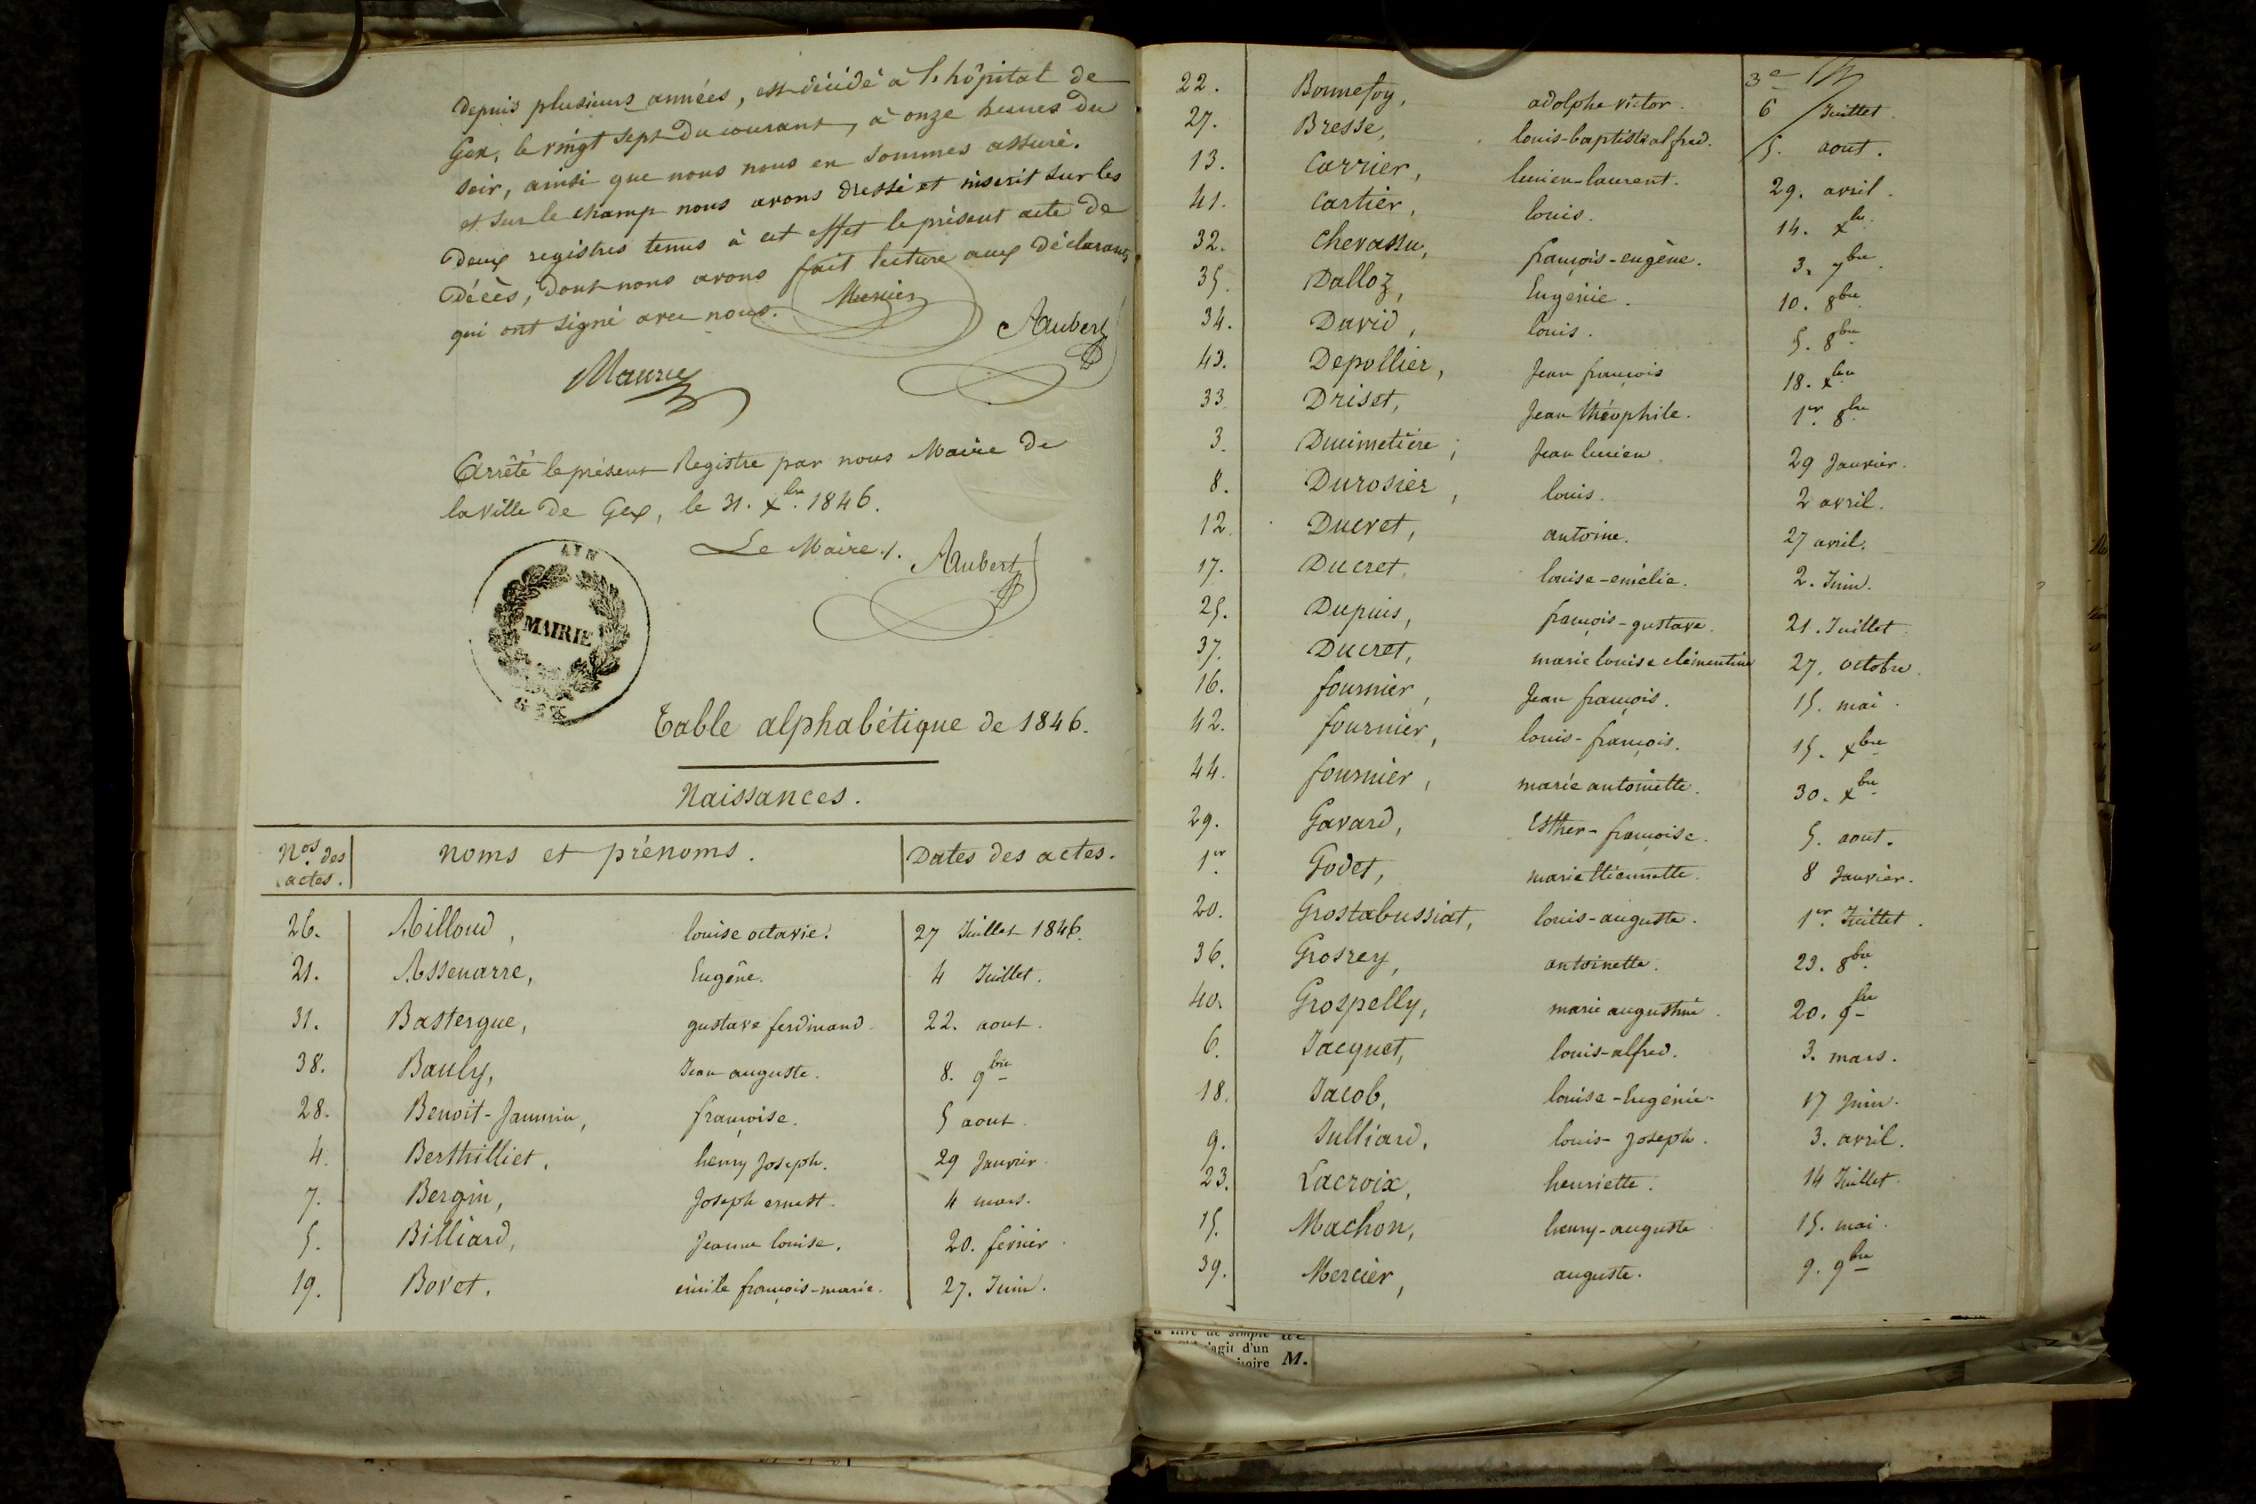 depuis plusieurs années, est décédé à l'hôpital de
Gex, le vingt sept du courant, à onze heures du
soir, ainsi que nous nous en sommes assuré.
et sur le champ nous avons dressé et inscrit sur les
deux registres tenus à cet effet le présent acte de
décès, dont nous avons fait lecture aux déclarants,
qui ont signé avec nous. Mercier
Aubert
Maurice
Arrêté le présent Registre par nous Maire de
la ville de Gex, le 31. xbre 1846.
Le Maire. Aubert
AIN
MAIRIE
GEX
Table alphabétique de 1846.
Naissances.
Nos des actes. noms et prénoms. Dates des actes.
26. Milloud, louise octavie. 27 Juillet 1846.
21. Assenarre, Eugène. 4 Juillet.
31. Bastergue, gustave ferdinand. 22. aout.
38. Bauly, Jean auguste. 8. 9bre
28. Benoit-Jannin, françoise. 5 aout.
4. Berthilliet, henry Joseph. 29 Janvier.
7. Bergin, Joseph ernest. 4 mars.
5. Billiard, Jeanne louise. 20. février.
19. Bovet. émile françois-marie. 27. Juin.
3e
22. Bonnefoy, adolphe victor. 6 Juillet.
27. Bresse, louis-baptiste alfred. 5. aout.
13. Carrier, lucien-laurent. 29. avril.
41. Cartier, louis. 14. xbre
32. Chevassu, françois-eugène. 3. 7bre
35. Dalloz, Eugénie. 10. 8bre
34. David, louis. 5. 8bre
43. Depollier, Jean françois 18. xbre
33. Driset, Jean théophile. 1er. 8bre
3. Duimetière, Jean lucien 29 Janvier.
8. Durosier, louis. 2 avril.
12. Ducret, antoine. 27 avril.
17. Ducret, louise-emélie. 2. Juin.
25. Dupuis, françois-gustave. 21. Juillet.
37. Ducret, marie louise clémentine 27. octobre
16. fournier, Jean françois. 15. mai.
42. fournier, louis-françois. 15. xbre
44. fournier, marie antoinette. 30. xbre
29. Gavard, Esther-françoise. 5. aout.
1er. Godet, marie Etiennette. 8 Janvier.
20. Grostabussiat, louis-auguste. 1er. Juillet.
36. Grosrey, antoinette. 23. 8bre
40. Grospelly, marie augustine. 20. 9bre
6. Jacquet, louis-alfred. 3. mars.
18. Jacob, louise-Eugénie. 17 Juin.
9. Julliard, louis-Joseph. 3. avril.
23. Lacroix, henriette. 14 Juillet.
15. Machon, henry-auguste 15. mai.
39. Mercier, auguste. 9. 9bre
agit d'un
M.